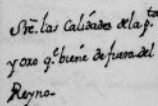 Sre. las Calidades de la pta
y oro q.e biene de fuera del
Reyno.